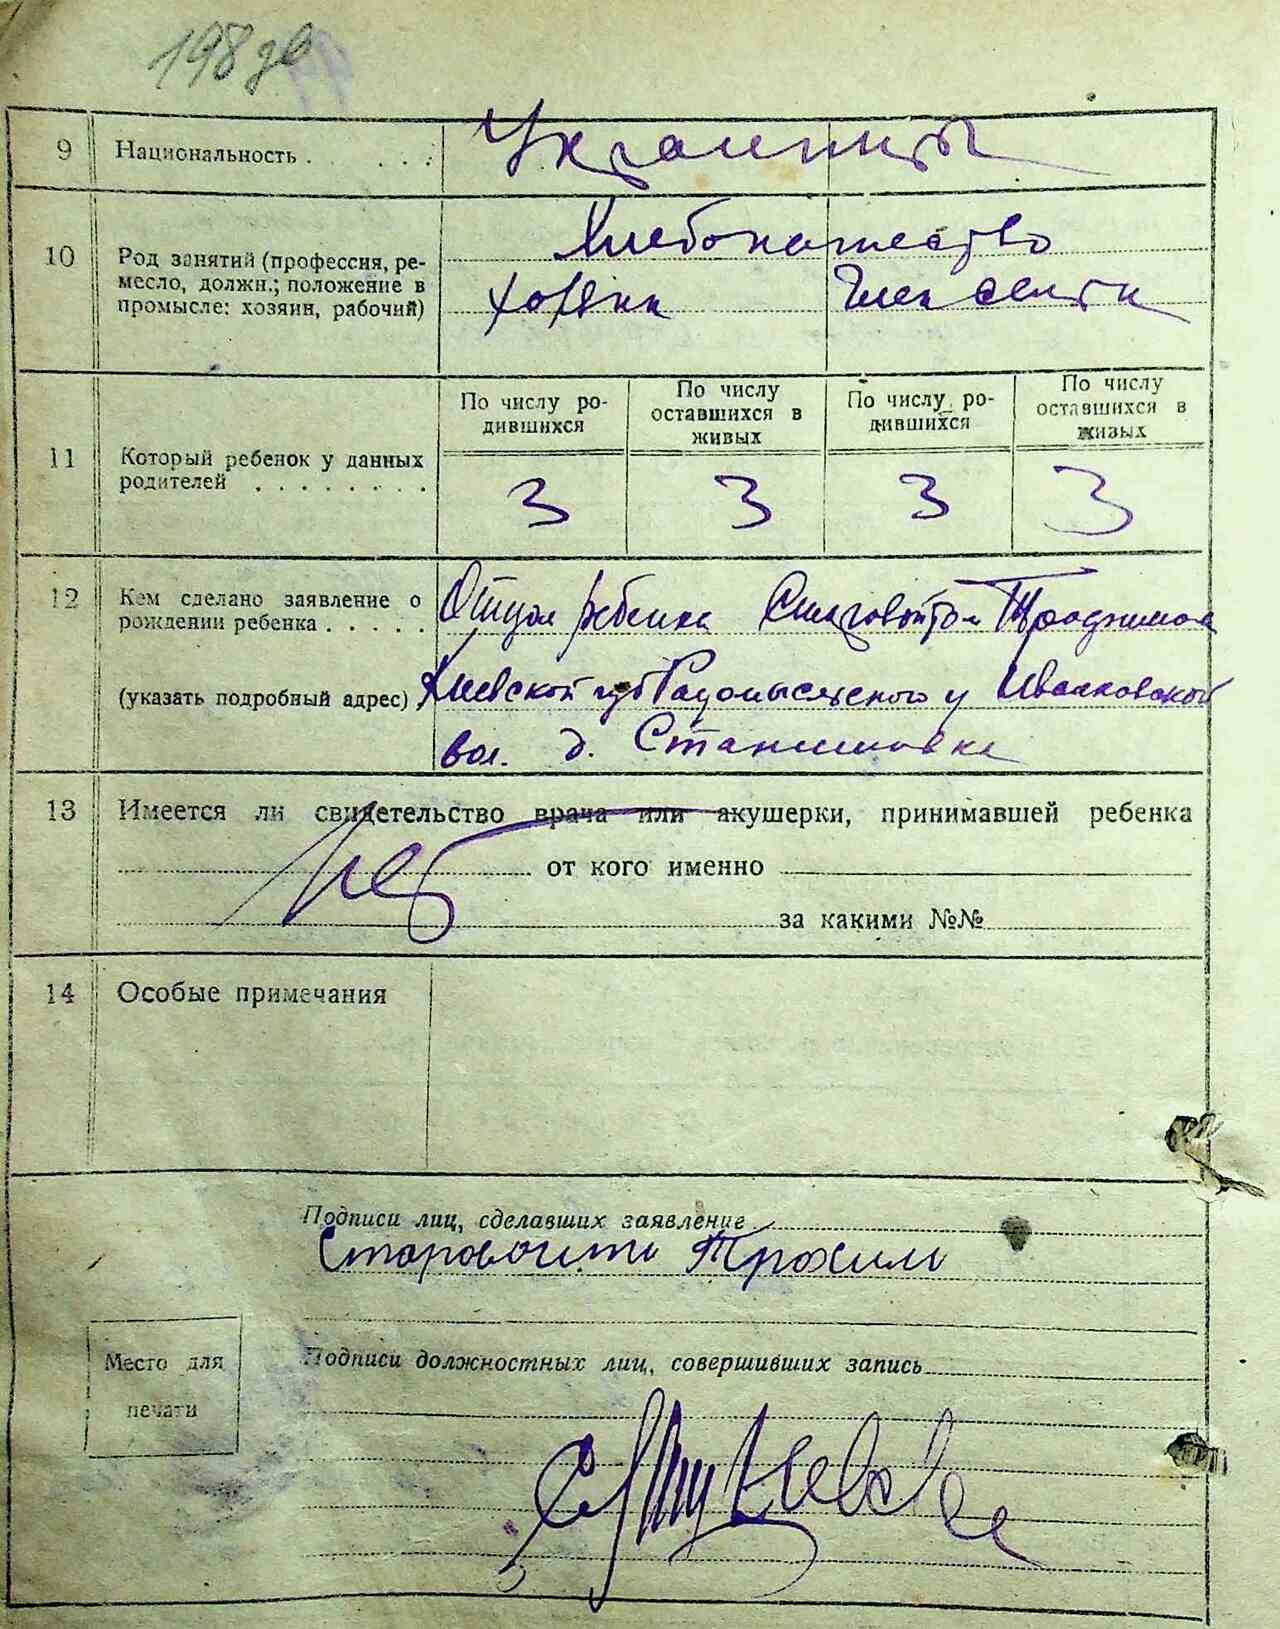 198 зв
9 Национальность . . . . . . Украинцы
10 Род занятий (профессия, ре-
месло, должн.; положение в
промысле: хозяин, рабочий)
Хлебопашество
хозяин Член семьи
11 Который ребенок у данных
родителей . . . . . . . .
По числу ро-
дившихся
По числу
оставшихся в
живых
По числу ро-
дившихся
По числу
оставшихся в
живых
3 3 3 3
12 Кем сделано заявление о
рождении ребенка . . . . .
(указать подробный адрес)
Отцом ребенка Трофимом
Киевской губ Радомысльского у Иванковской
вол. д. Станишовка
13 Имеется ли свидетельство врача или акушерки, принимавшей ребенка
Нет от кого именно
за какими №№
14 Особые примечания
Подписи лиц, сделавших заявление
Старовойт Трохим
Место для
печати
Подписи должностных лиц, совершивших запись